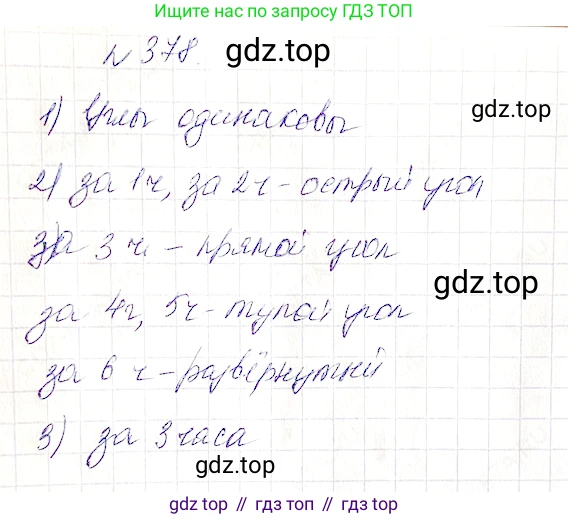 Ищите нас по запросу ГДЗ ТОП
N 378. gdz.top
1) Углы одинаковы
gdz.top
2) за 1ч, за 2ч - острый угол
за 3 ч - прямой угол
gdz.top
за 4ч, 5ч - тупой угол
за 6 ч - развёрнутый
3) за 3 часа
gdz.top
gdz.top // гдз топ // gdz.top // гдз топ